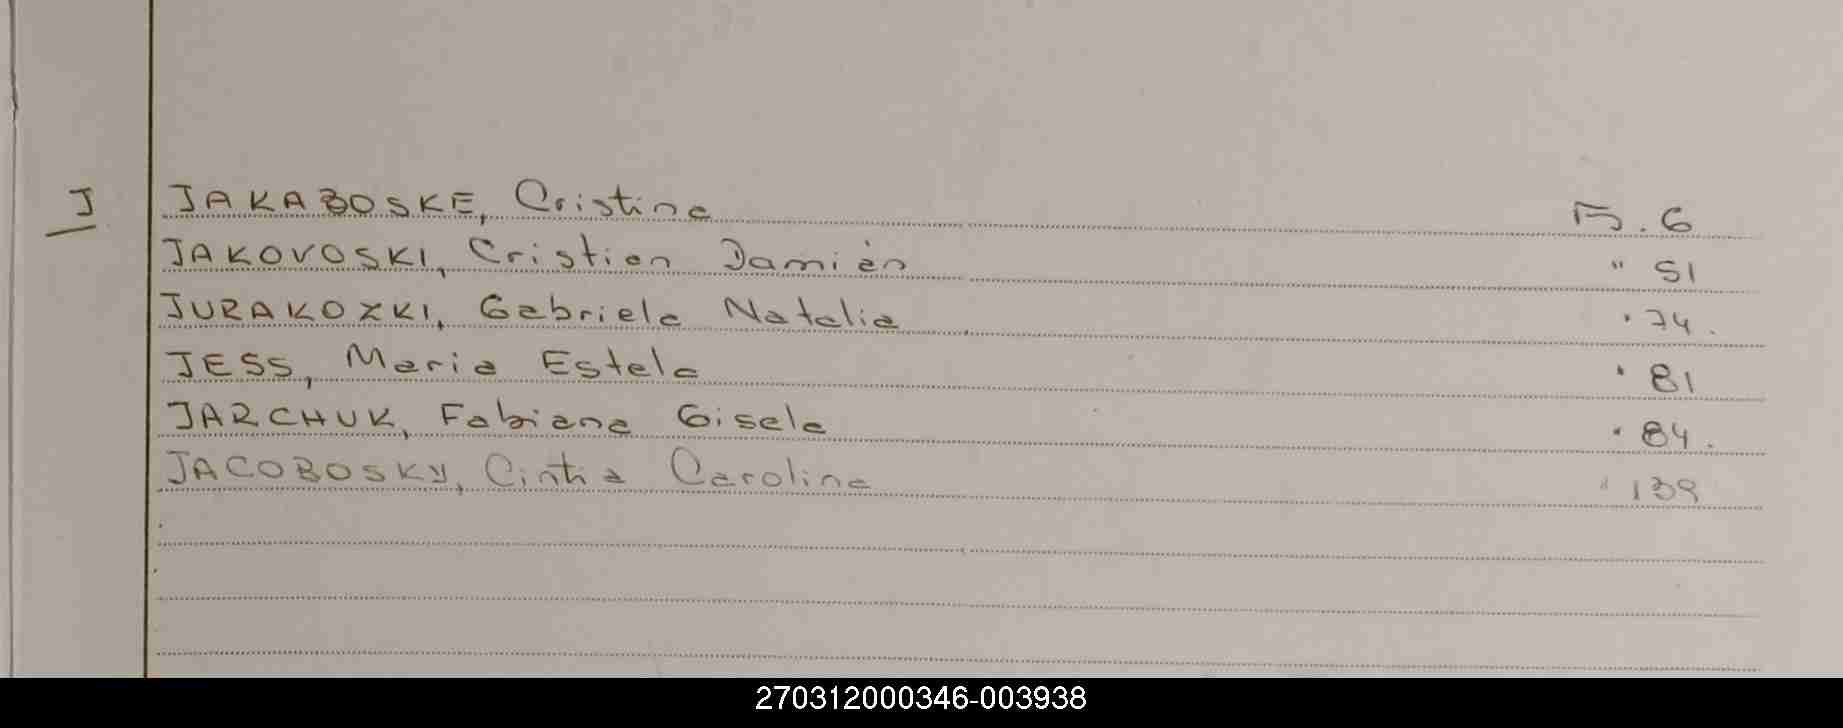 J JAKABOSKE, Cristina Fs. 6
JAKOVOSKI, Cristian Damián " 51
JURAKOZKI, Gabriela Natalia " 74.
JESS, Maria Estela " 81
JARCHUK, Fabiana Gisela " 84.
JACOBOSKY, Cintia Carolina " 139
270312000346-003938